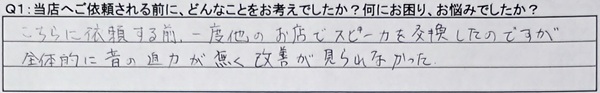 Q1：当店へご依頼される前に、どんなことをお考えでしたか？何にお困り、お悩みでしたか？
こちらに依頼する前、一度他のお店でスピーカを交換したのですが
全体的に音の迫力が無く改善が見られなかった.